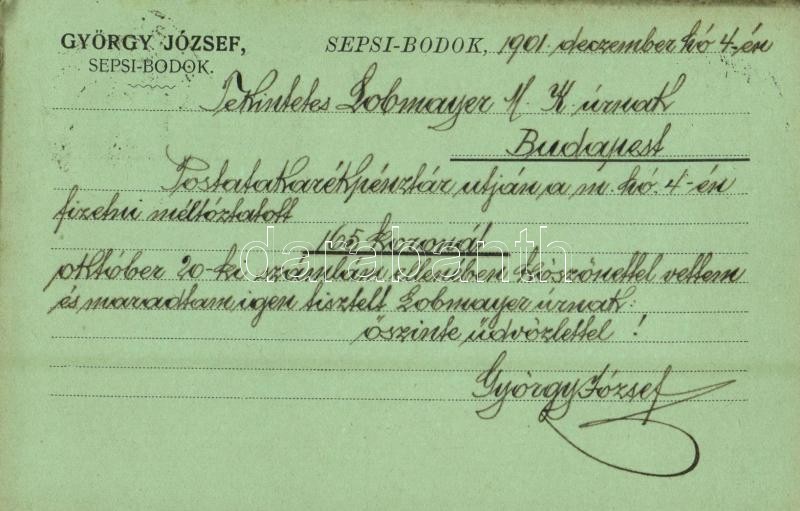 GYÖRGY JÓZSEF,
SEPSI-BODOK.
SEPSI-BODOK, 1901 deczember hó 4-én
Tekintetes Lobmayer N. K. úrnak
Budapest
Postatakarékpénztár utján a m. hó. 4-én
fizetni méltóztatott
165 koronát
október 20-ki számlám ellenében köszönettel vettem
és maradtam igen tisztelt Lobmayer úrnak:
őszinte üdvözlettel!
György József
darabanth